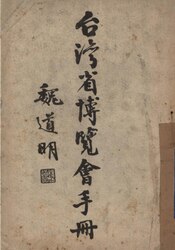 台湾省博覽會手冊
魏道明